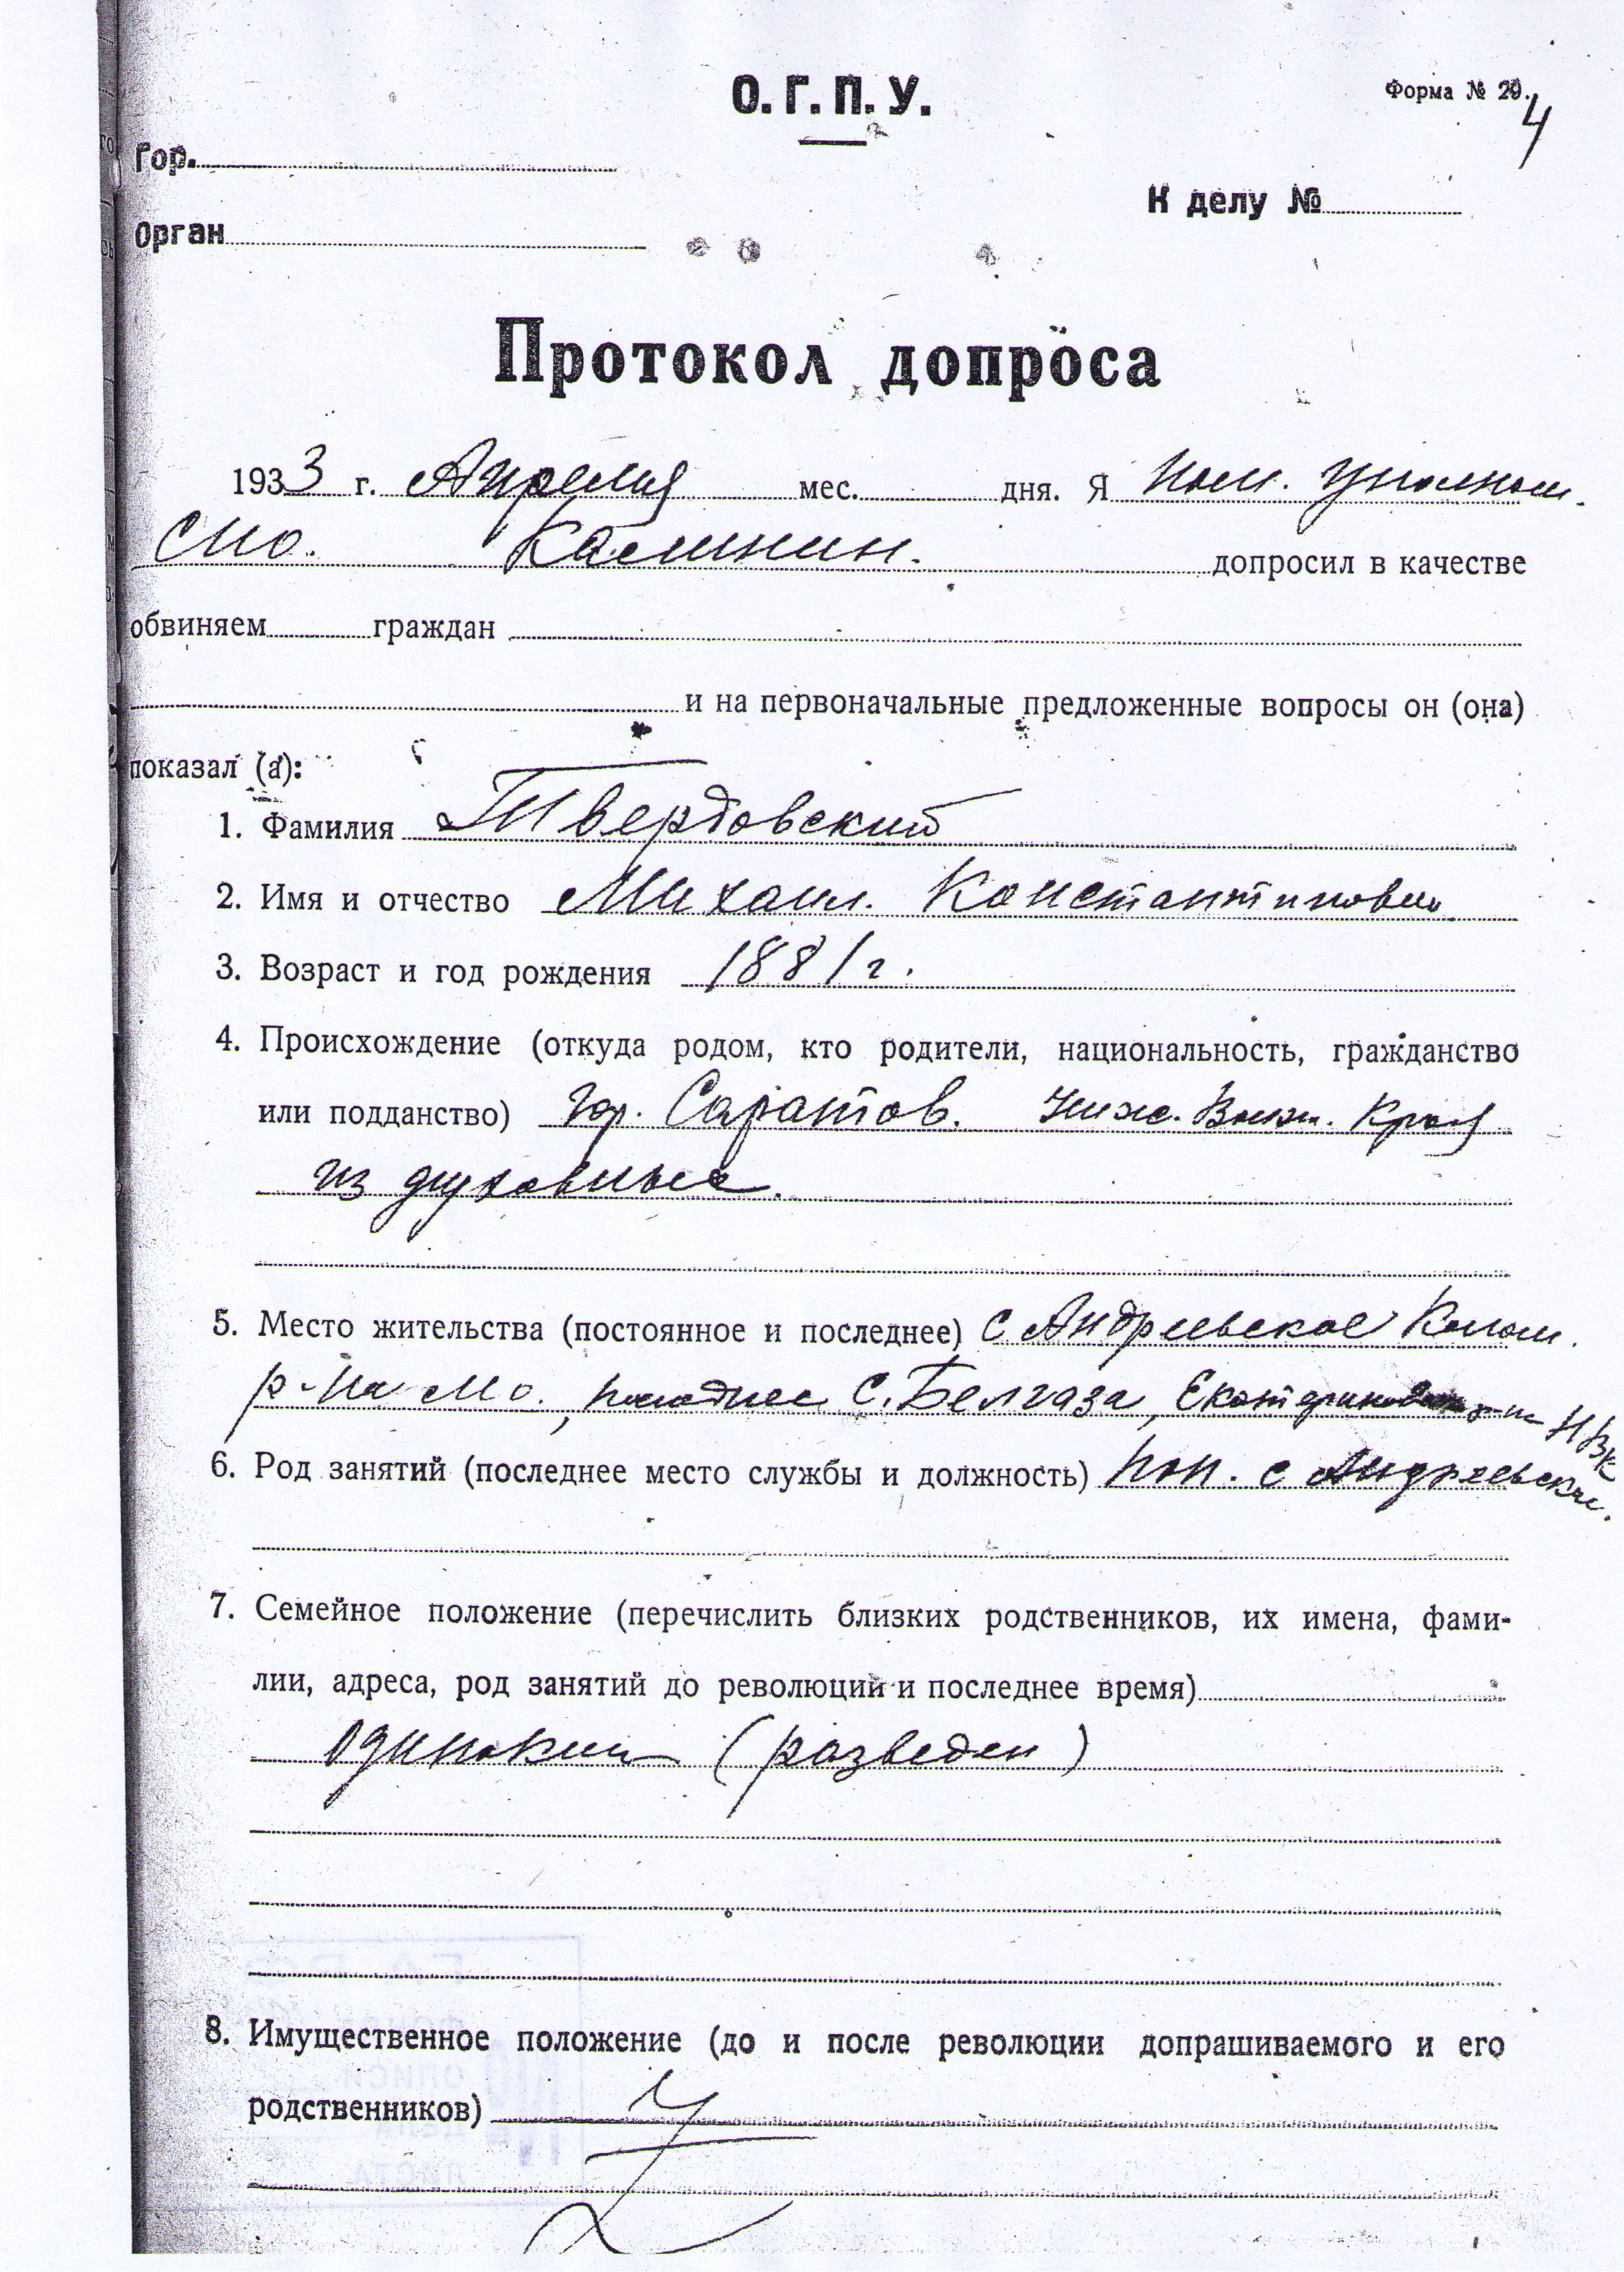 О.Г.П.У.
Форма № 29.
4
Гор.
К делу №
Орган
Протокол допроса
1933 г. Апреля мес. дня. Я пом. уполном.
СПО. Калинин. допросил в качестве
обвиняем граждан
и на первоначальные предложенные вопросы он (она)
показал (а):
1. Фамилия Твердовский
2. Имя и отчество Михаил. Константинович
3. Возраст и год рождения 1881 г.
4. Происхождение (откуда родом, кто родители, национальность, гражданство
или подданство) гор. Саратов. Ниж. Волж. Края
из духовных.
5. Место жительства (постоянное и последнее) с Андреевское Колом.
р-на МО., последнее С. Белгаза, НВК
6. Род занятий (последнее место службы и должность) поп. с Андреевское.
7. Семейное положение (перечислить близких родственников, их имена, фами-
лии, адреса, род занятий до революции и последнее время)
одинокий (разведен)
8. Имущественное положение (до и после революции допрашиваемого и его
родственников)